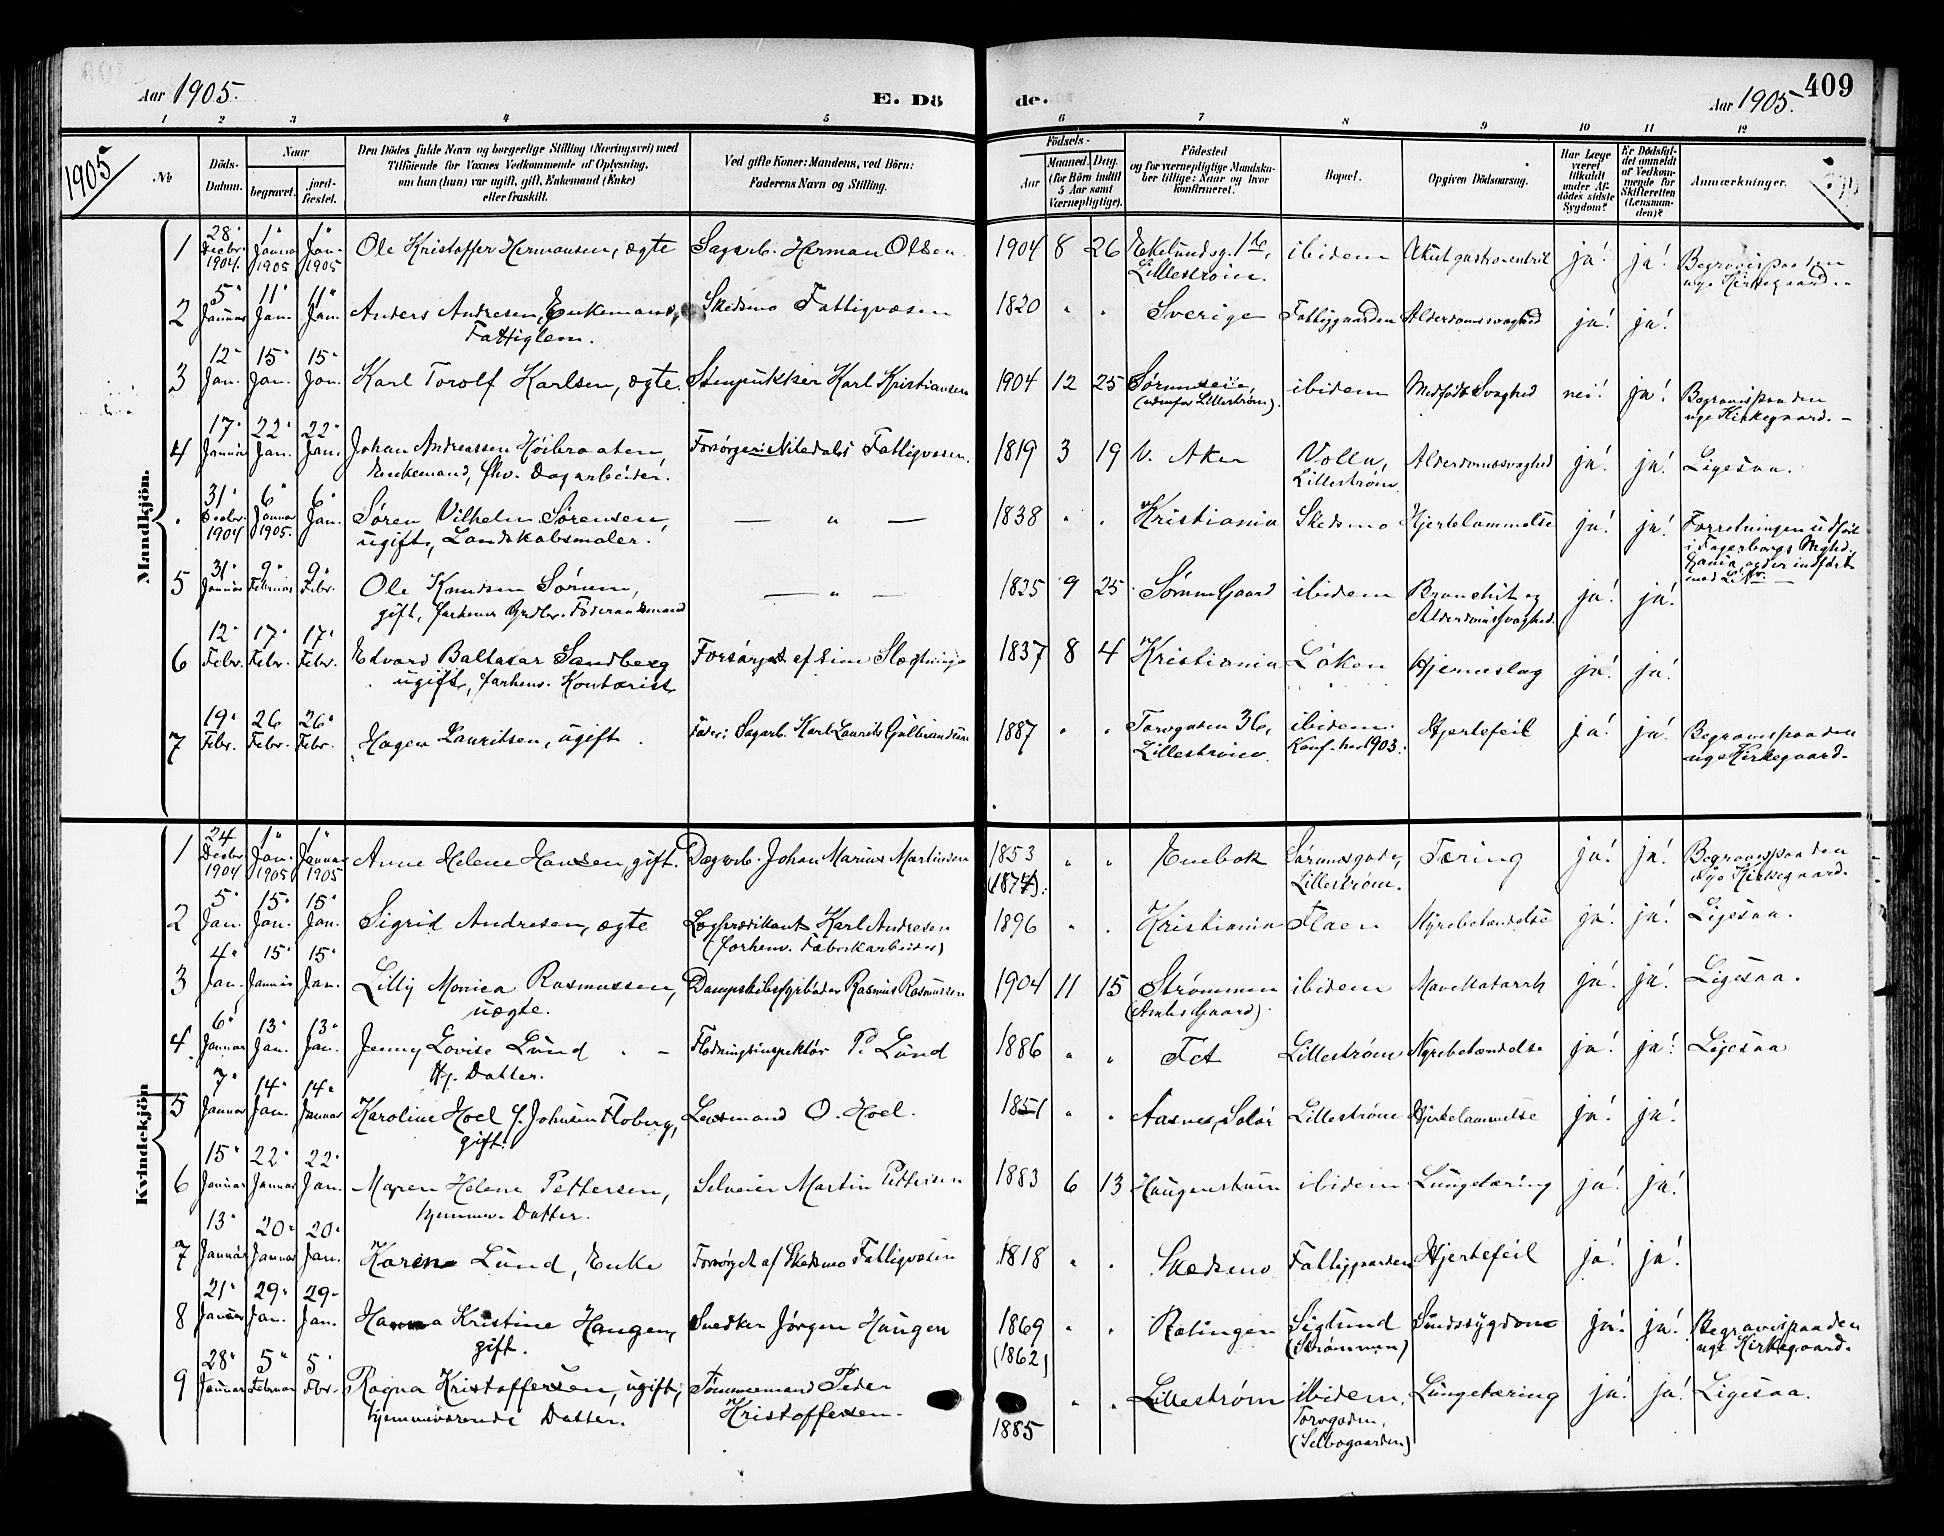 Aar 1905.
E. Dö
de.
Aar 1905.
409
1 2 3 4 5 6 7 8 9 10 11 12
1905
No
Döds-
Datum.
Naar
begravet.
jord-
fæstet.
Den Dödes fulde Navn og borgerlige Stilling (Næringsvei) med
Tilföiende for Voxnes Vedkommende af Oplysning,
om han (hun) var ugift, gift, Enkemand (Enke)
eller fraskilt.
Ved gifte Koner: Mandens, ved Börn:
Faderens Navn og Stilling.
Födsels-
Aar
Maaned. Dag.
(for Börn indtil
5 Aar samt
Værnepligtige).
Födested
og for værnepligtige Mandska-
ber tillige: Naar og hvor
konfirmeret.
Bopæl.
Opgiven Dödsaarsag.
Har Læge
været
tilkaldt
under Af-
dödes sidste
Sygdom?
Er Dödsfal-
det anmeldt
af Vedkom-
mende for
Skifteretten
(Lensman-
den)?
Anmærkninger.
Mandkjön.
1 28" Decbr. 1904. 1" Januar 1905 1" Jan. 1905 Ole Kristoffer Hermansen, ægte Sagarb. Herman Olsen 1904 8 26 Ekelundsg. 16, Lillestrøm. ibidem Akut gastroenterit ja! ja! Begravet paa den nye Kirkegaard.
2 5" Januar 11" Jan. 11" Jan. Anders Andresen, Enkemand, Fattiglem. Skedsmo Fattigvæsen 1820 " " Sverige Fattiggaarden Alderdomssvaghed ja! ja!
3 12" Jan. 15" Jan. 15" Jan. Karl Torolf Karlsen, ægte. Stenpukker Karl Kristiansen 1904 12 25 (udenfor Lillestrøm). ibidem Medfødt Svaghed nei! ja! Begravet paa den nye Kirkegaard.
4 17" Januar 22" Jan. 22" Jan. Johan Andreassen Høibraaten, Enkemand, fhv. Dagarbeider. Forsørger: Nitedals Fattigvæsen. 1819 3 19 V. Aker Volla, Lillestrøm. Alderdomssvaghed ja! ja! Ligesaa.
" 31" Decbr. 1904 6" Januar 1905. 6" Jan. Søren Vilhelm Sørensen, ugift, Landskabsmaler. — " — 1838 " " Kristiania Skedsmo Hjertelammelse ja! ja! Forretningen udført i Fagerborgs Meghd.
5 31" Januar 9" Februar 9" Febr. Ole Knudsen Sørum, gift, forhenv. Grdbr. Föderaadsmand — " — 1825 9 25 Sørum Gaard ibidem Bronchit og Alderdomssvaghed. ja! ja!
6 12" Febr. 17" Febr. 17" Febr. Edvard Baltasar Sandberg ugift, forhenv. Kontorist Forsørget af sine Slægtninge 1837 8 4 Kristiania Løken Hjerneslag ja! ja!
7 19" Febr. 26 Febr. 26" Febr. Hagen Lauritsen, ugift. Fader: Sagarb. Karl Laurits Gulbrandsen 1887 " " Torvgaden 36, Lillestrøm. ibidem. Konf. her 1903. Hjertefeil ja! ja! Begravet paa den nye Kirkegaard.
Kvindekjön
1 24 Decbr. 1904 1" Jan. 1905 1" Januar 1905 Anne Helene Hansen, gift. Dagarb. Johan Marius Martinsen 1853 (1874). " " Enebak Sørumsgaden, Lillestrøm. Tæring ja! ja! Begravet paa den nye Kirkegaard.
2 5" Jan. 15" Jan. 15" Jan. Sigrid Andresen, ægte Lægprædikant Karl Andresen (forhenv. Fabrikarbeider) 1896 " " Kristiania Flaen Nyrebetændelse ja! ja! Ligesaa.
3 4" Jan. 15" Januar 15" Jan. Lilly Monica Rasmussen, uægte. Dampskibsfyrbøder Rasmus Rasmussen 1904 11 15 Strømmen ibidem Mavekatarrh ja! ja! Ligesaa.
4 6" Januar 13" Jan. 13" Jan. Jenny Lovise Lund Hj. Datter. Flødningsinspektør P. Lund 1886 " " Fet Lillestrøm Nyrebetændelse ja! ja! Ligesaa
5 7" Januar 14" Jan. 14" Januar Karoline Hoel f. Johnsen Floberg, gift. Lensmand O. Hoel. 1851 " " Aasnes, Solør Lillestrøm Hjertelammelse ja! ja!
6 15" Januar 22" Januar 22" Jan. Maren Helene Pettersen, hjemmev. Datter. Selveier Martin Pettersen 1883 6 13 Haugenstuen ibidem Lungetæring ja! ja!
7 13" Januar 20" Januar 20" Jan. Karen Lund, Enke Forsørget af Skedsmo Fattigvæsen 1818 " " Skedsmo Fattiggaarden Hjertefeil ja! ja!
8 21" Januar 29" Jan. 29" Jan. Hanna Kristine Haugen, gift. Snedker Jørgen Haugen 1869 (1862) " " Rælingen Siglund (Strømmen) Sindssygdom ja! ja! Begravet paa den nye Kirkegaard.
9 28" Januar 5" Februar 5" Fbr. Ragna Kristoffersen, ugift, hjemmeværende Datter. Tømmermand Peder Kristoffersen. 1885 " " Lillestrøm ibidem. Torvgaden, (Selbogaarden) Lungetæring ja! ja! Ligesaa.